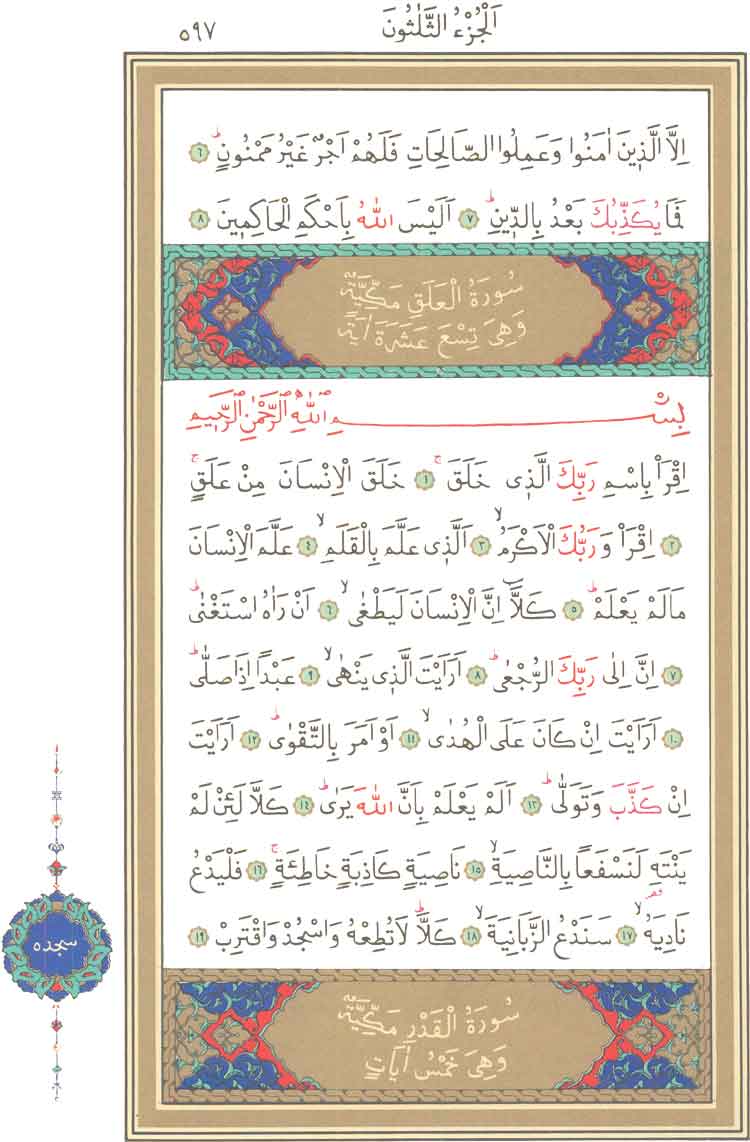 اَلْجُزْءُ الثَّلٰثُونَ
٥٩٧
اِلَّا الَّذٖينَ اٰمَنُوا وَعَمِلُوا الصَّالِحَاتِ فَلَهُمْ اَجْرٌ غَيْرُ مَمْنُونٍؕ ٦
فَمَا يُكَذِّبُكَ بَعْدُ بِالدّٖينِؕ ٧ اَلَيْسَ اللّٰهُ بِاَحْكَمِ الْحَاكِمٖينَ ٨
سُورَةُ الْعَلَقِ مَكِّيَّةٌ
وَهِىَ تِسْعَ عَشَرَةَ اٰيَةً
بِسْمِ اللّٰهِ الرَّحْمٰنِ الرَّحٖيمِ
اِقْرَاْ بِاسْمِ رَبِّكَ الَّذٖى خَلَقَۚ ١ خَلَقَ الْاِنْسَانَ مِنْ عَلَقٍۚ
٢ اِقْرَاْ وَرَبُّكَ الْاَكْرَمُۙ ٣ اَلَّذٖى عَلَّمَ بِالْقَلَمِۙ ٤ عَلَّمَ الْاِنْسَانَ
مَالَمْ يَعْلَمْؕ ٥ كَلَّٓا اِنَّ الْاِنْسَانَ لَيَطْغٰىۙ ٦ اَنْ رَاٰهُ اسْتَغْنٰىؕ
٧ اِنَّ اِلٰى رَبِّكَ الرُّجْعٰىؕ ٨ اَرَاَيْتَ الَّذٖى يَنْهٰىۙ ٩ عَبْدًا اِذَا صَلّٰىؕ
١٠ اَرَاَيْتَ اِنْ كَانَ عَلَى الْهُدٰىۙ ١١ اَوْ اَمَرَ بِالتَّقْوٰىؕ ١٢ اَرَاَيْتَ
اِنْ كَذَّبَ وَتَوَلّٰىؕ ١٣ اَلَمْ يَعْلَمْ بِاَنَّ اللّٰهَ يَرٰىؕ ١٤ كَلَّا لَئِنْ لَمْ
يَنْتَهِ لَنَسْفَعًا بِالنَّاصِيَةِۙ ١٥ نَاصِيَةٍ كَاذِبَةٍ خَاطِئَةٍۚ ١٦ فَلْيَدْعُ
نَادِيَهُۙ ١٧ سَنَدْعُ الزَّبَانِيَةَۙ ١٨ كَلَّاؕ لَا تُطِعْهُ وَاسْجُدْ وَاقْتَرِبْ ١٩
سجده
سُورَةُ الْقَدْرِ مَكِّيَّةٌ
وَهِىَ خَمْسُ اٰيَاتٍ